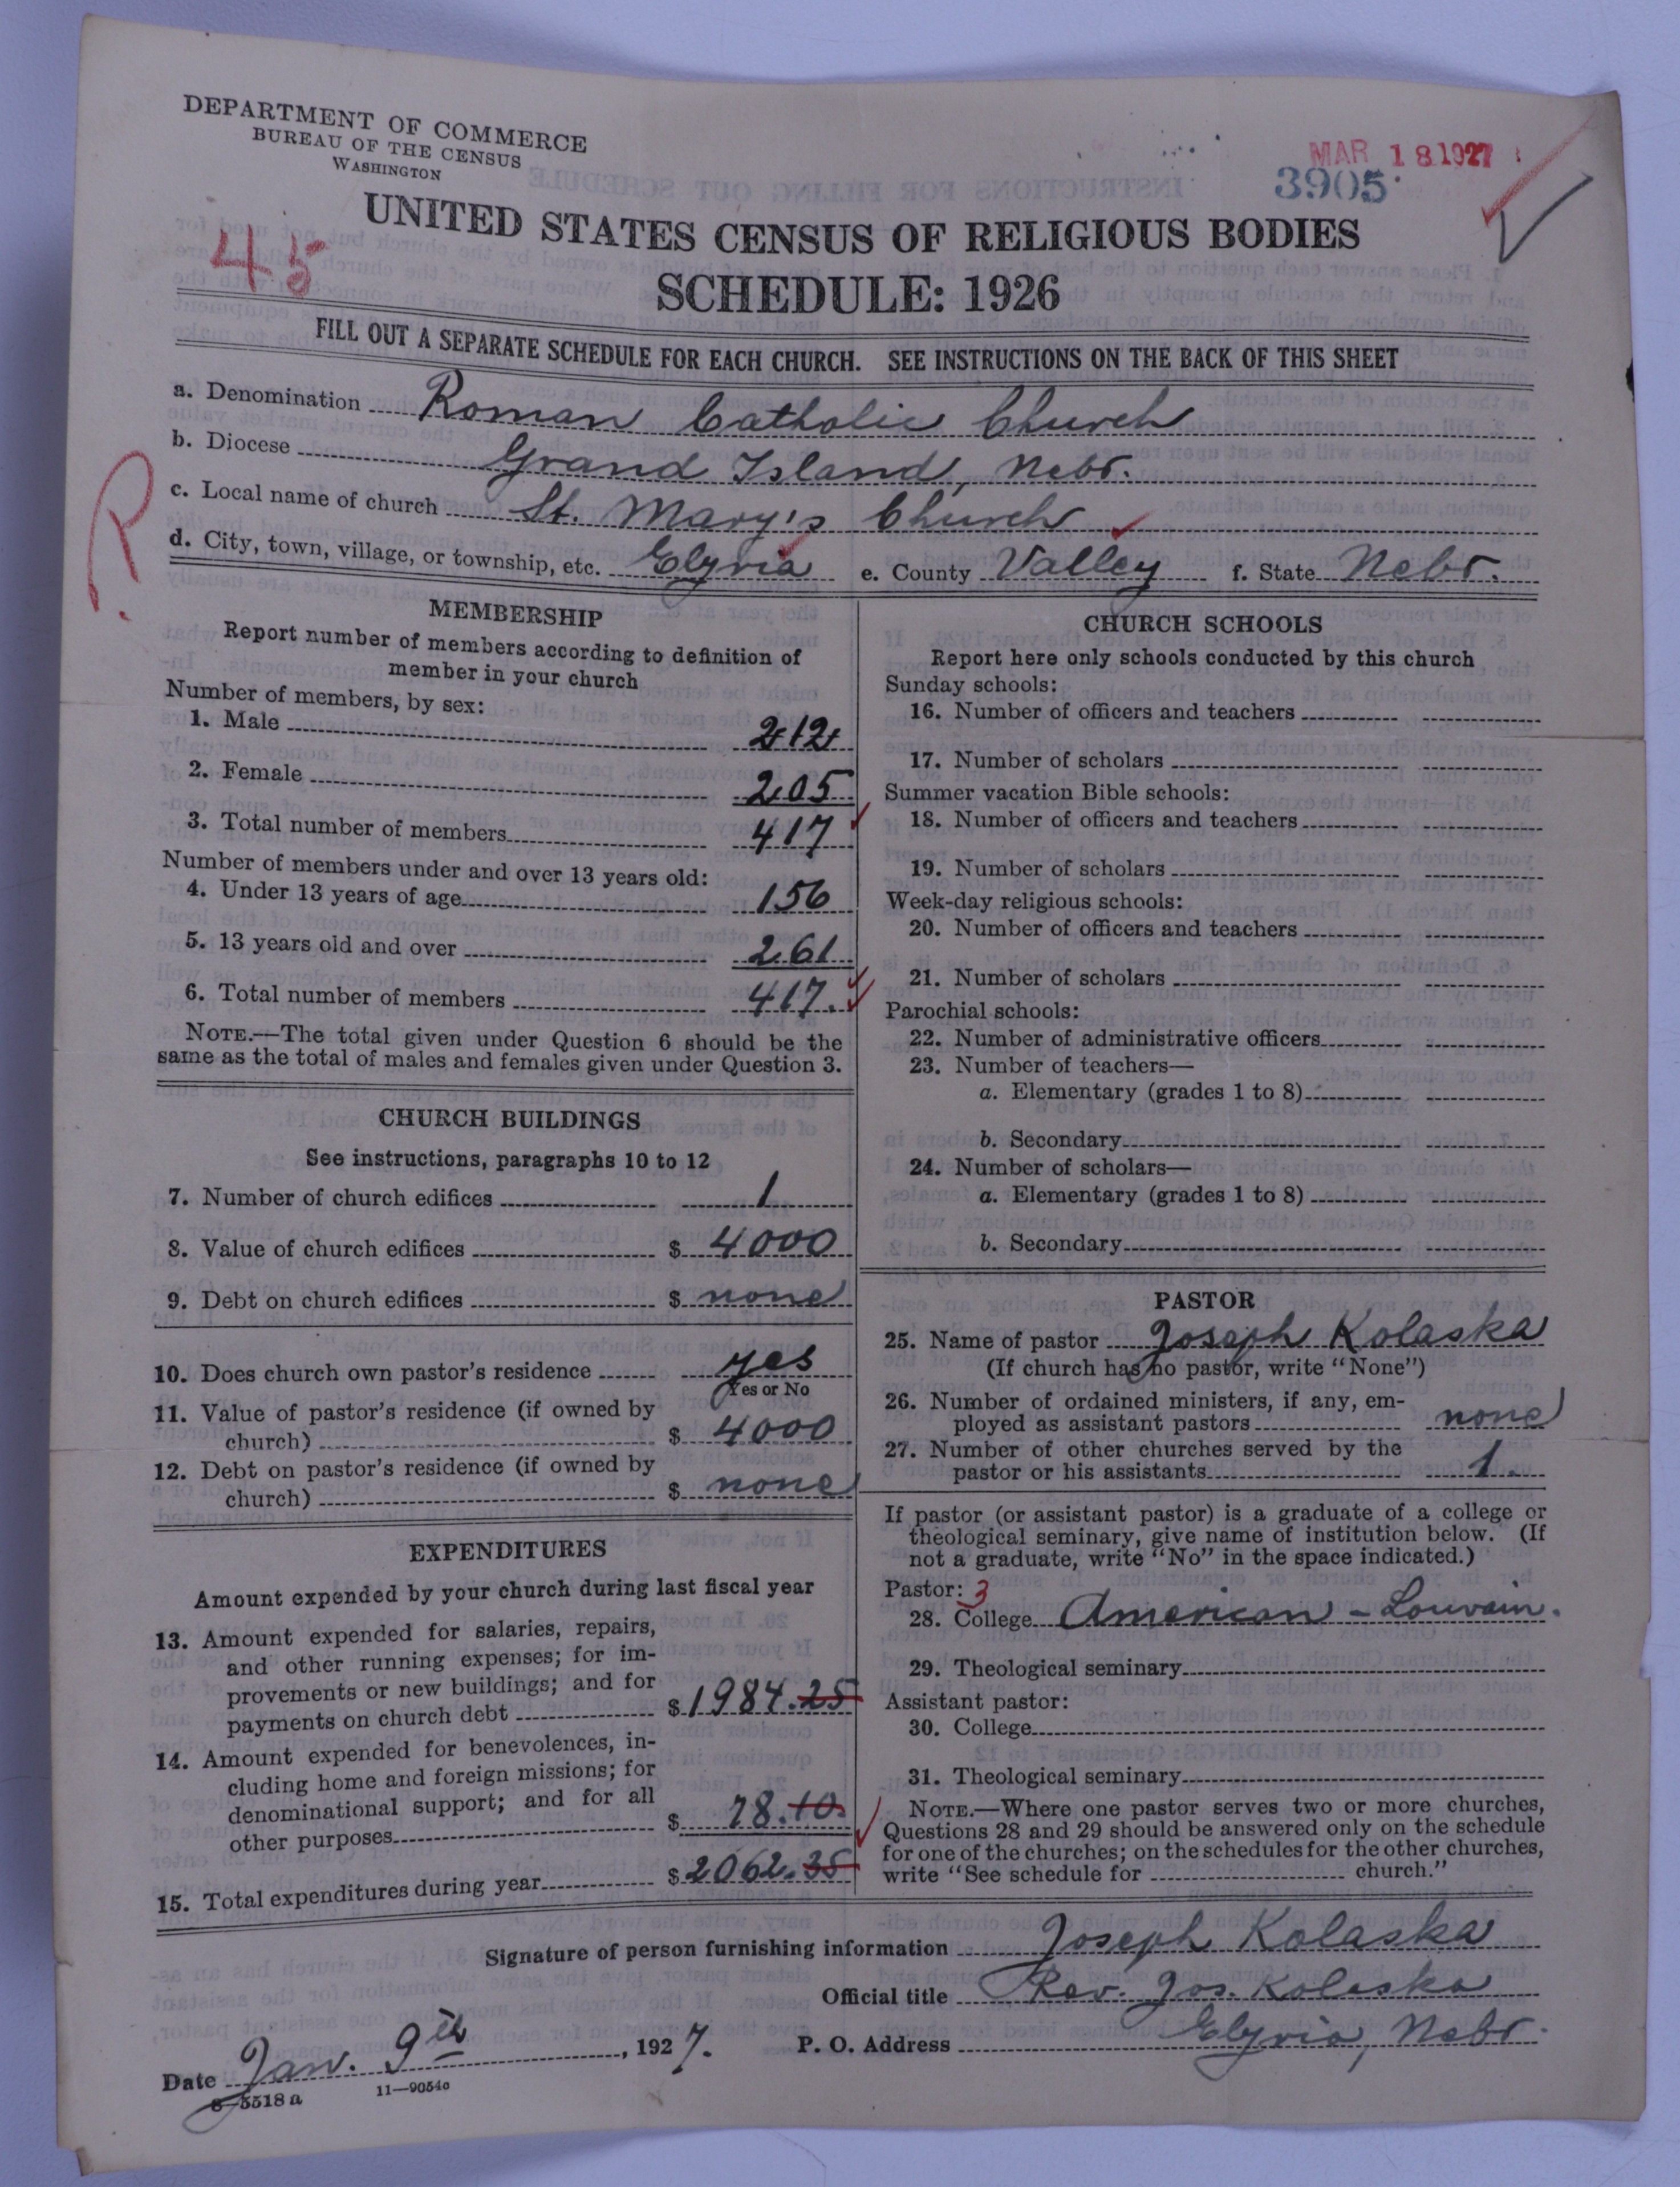 DEPARTMENT OF COMMERCE
BUREAU OF THE CENSUS
WASHINGTON
MAR 18 1927
3905
UNITED STATES CENSUS OF RELIGIOUS BODIES
45
SCHEDULE: 1926
FILL OUT A SEPARATE SCHEDULE FOR EACH CHURCH. SEE INSTRUCTIONS ON THE BACK OF THIS SHEET
a. Denomination Roman Catholic Church
b. Diocese Grand Island, Nebr.
R
c. Local name of church St. Mary's Church
d. City, town, village, or township, etc. Elyria e. County Valley f. State Nebr.
MEMBERSHIP
Report number of members according to definition of
member in your church
Number of members, by sex:
1. Male 212
2. Female 205
3. Total number of members 417
Number of members under and over 13 years old:
4. Under 13 years of age 156
5. 13 years old and over 261
6. Total number of members 417.
NOTE.—The total given under Question 6 should be the
same as the total of males and females given under Question 3.
CHURCH BUILDINGS
See instructions, paragraphs 10 to 12
7. Number of church edifices 1
8. Value of church edifices $ 4000
9. Debt on church edifices $ none
10. Does church own pastor's residence yes
Yes or No
11. Value of pastor's residence (if owned by
church) $ 4000
12. Debt on pastor's residence (if owned by
church) $ none
EXPENDITURES
Amount expended by your church during last fiscal year
13. Amount expended for salaries, repairs,
and other running expenses; for im-
provements or new buildings; and for
payments on church debt $ 1984.25
14. Amount expended for benevolences, in-
cluding home and foreign missions; for
denominational support; and for all
other purposes $ 78.10
15. Total expenditures during year $ 2062.35
CHURCH SCHOOLS
Report here only schools conducted by this church
Sunday schools:
16. Number of officers and teachers
17. Number of scholars
Summer vacation Bible schools:
18. Number of officers and teachers
19. Number of scholars
Week-day religious schools:
20. Number of officers and teachers
21. Number of scholars
Parochial schools:
22. Number of administrative officers
23. Number of teachers—
a. Elementary (grades 1 to 8)
b. Secondary
24. Number of scholars—
a. Elementary (grades 1 to 8)
b. Secondary
PASTOR
25. Name of pastor Joseph Kolaska
(If church has no pastor, write "None")
26. Number of ordained ministers, if any, em-
ployed as assistant pastors none
27. Number of other churches served by the
pastor or his assistants 1.
If pastor (or assistant pastor) is a graduate of a college or
theological seminary, give name of institution below. (If
not a graduate, write "No" in the space indicated.)
Pastor: 3
28. College American - Louvain.
29. Theological seminary
Assistant pastor:
30. College
31. Theological seminary
NOTE.—Where one pastor serves two or more churches,
Questions 28 and 29 should be answered only on the schedule
for one of the churches; on the schedules for the other churches,
write "See schedule for church."
Signature of person furnishing information Joseph Kolaska
Official title Rev. Jos. Kolaska
Date Jan. 9th, 1927. P. O. Address Elyria, Nebr.
8—5518a 11—9054c